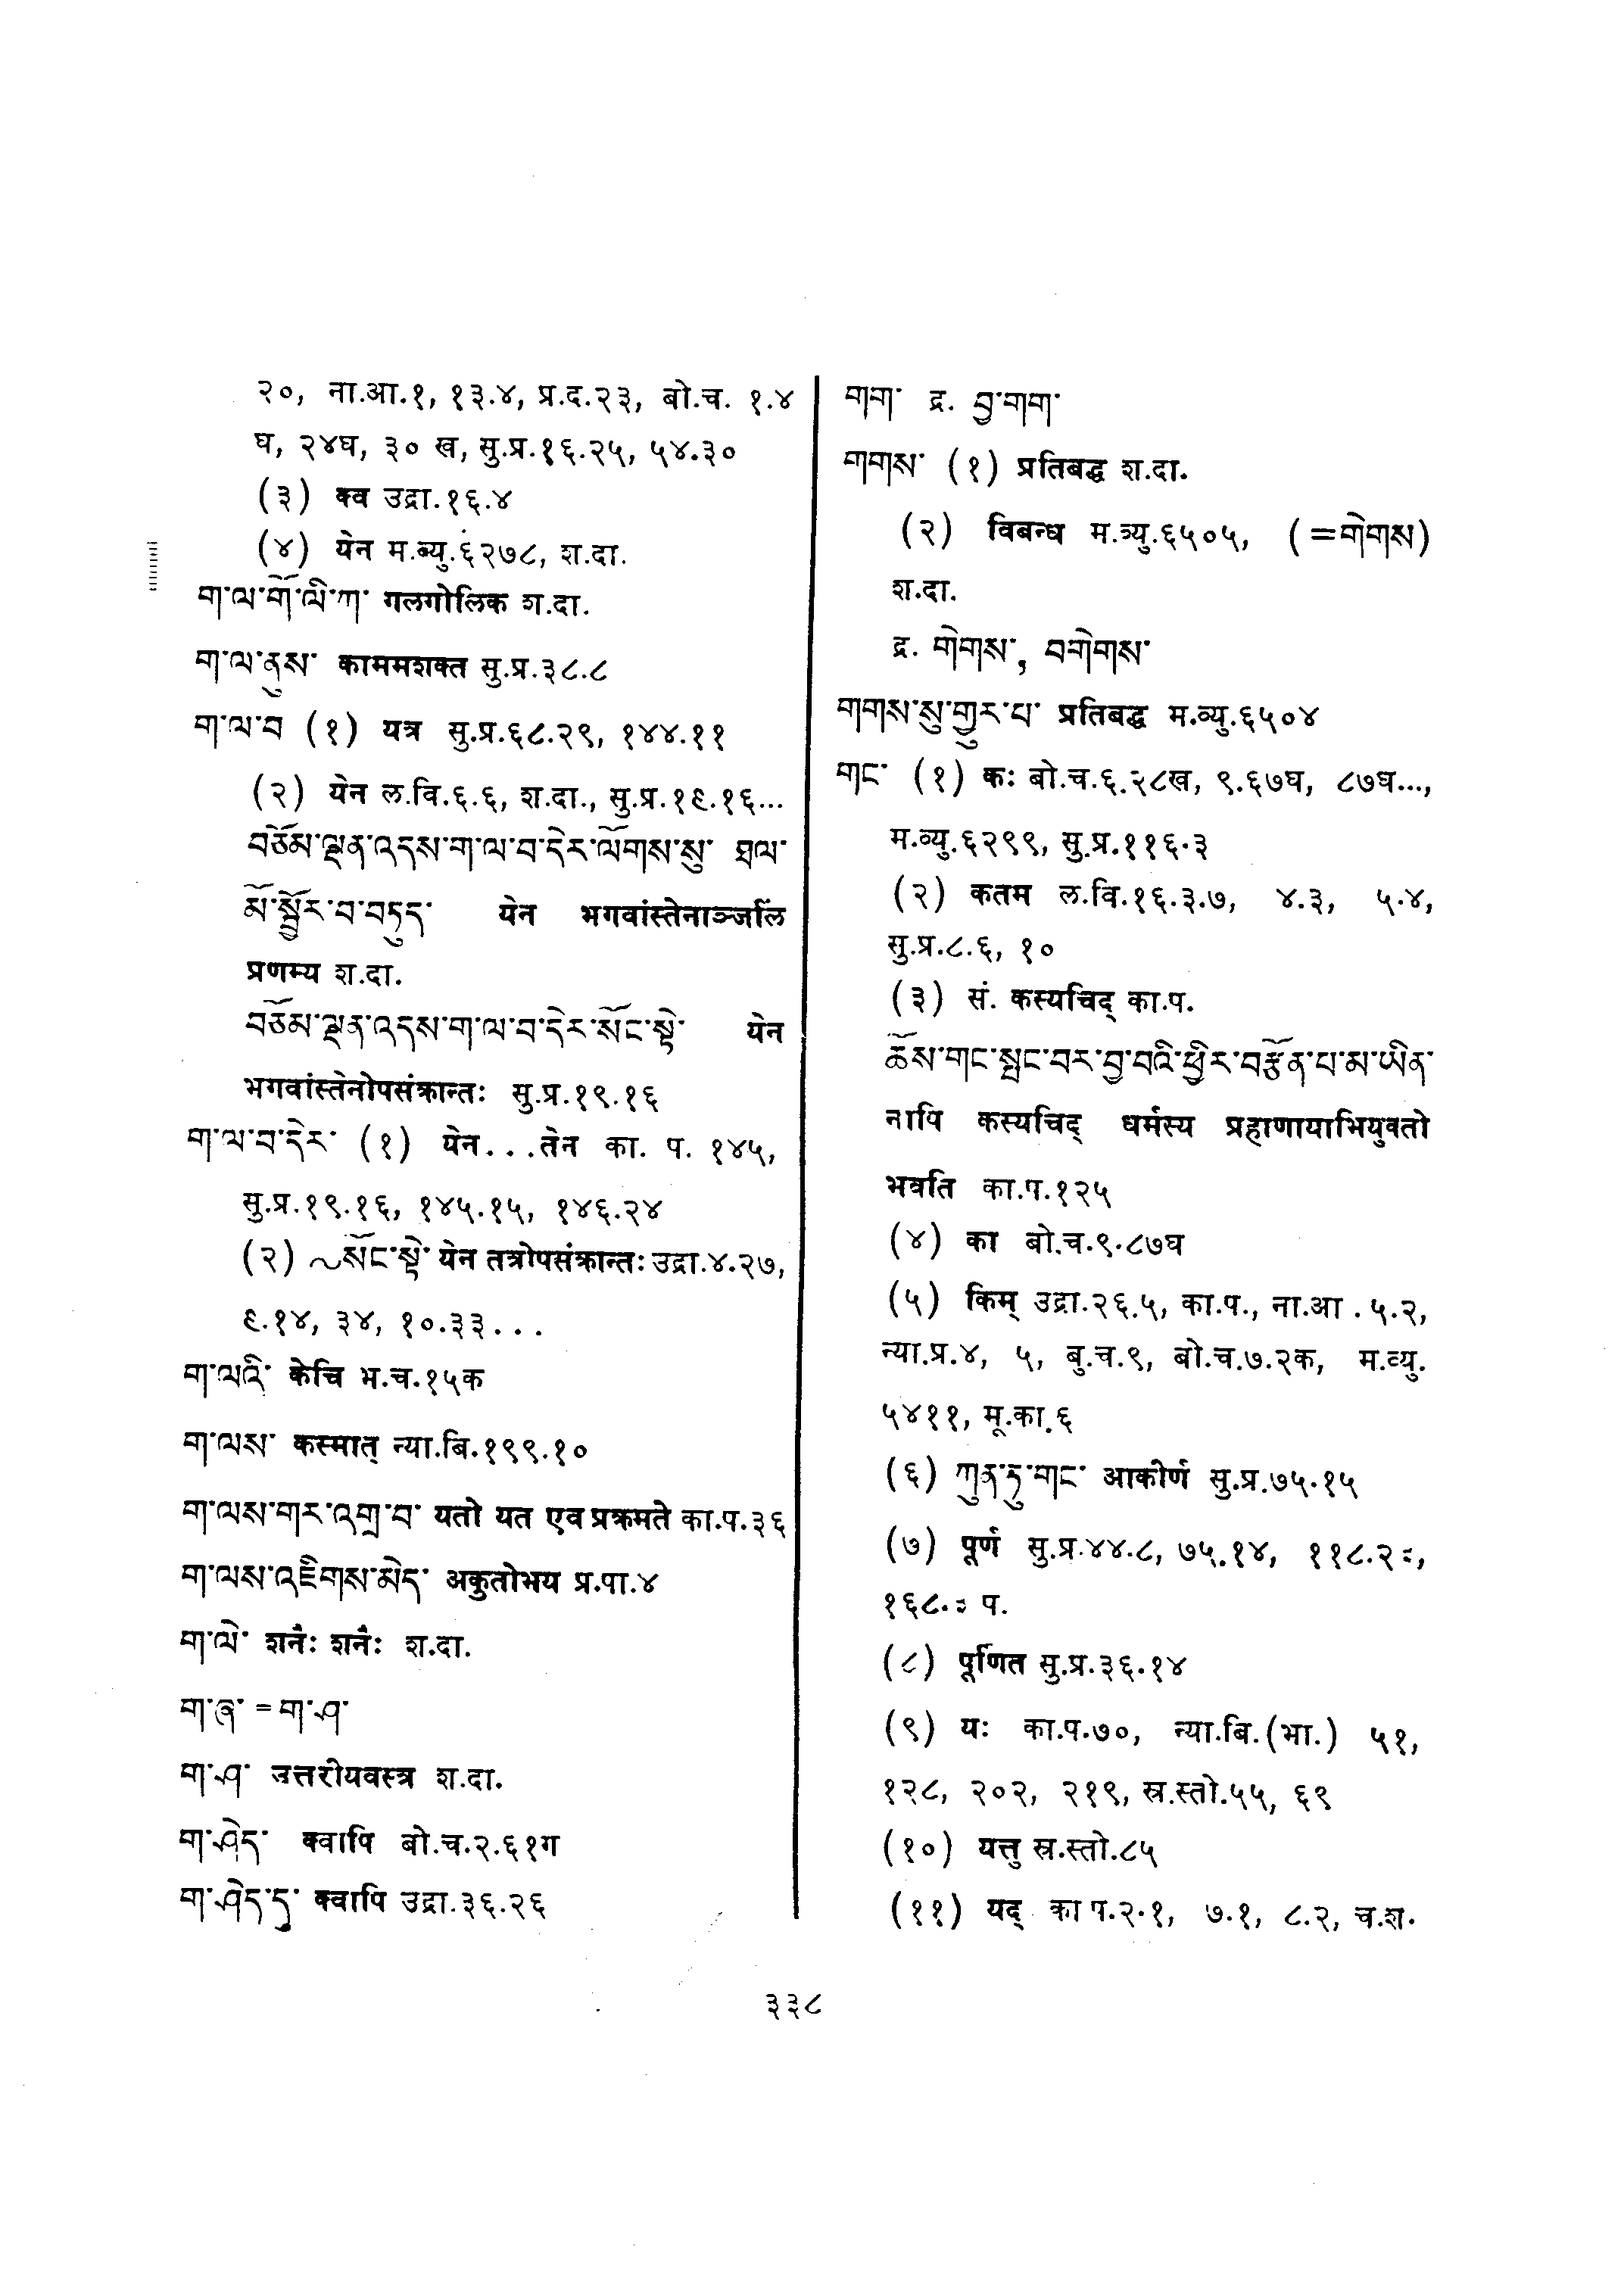 २०, ना.आ.१, १३.४, प्र.द.२३, बो.च. १.४
घ, २४घ, ३० ख, सु.प्र.१६.२५, ५४.३०
(३) क्व उद्रा.१६.४
(४) येन म.ब्यु.६२७८, श.दा.
ག་ལ་གོ་ལི་ཀ་ गलगोलिक श.दा.
ག་ལ་ནུས་ काममशक्त सु.प्र.३८.८
ག་ལ་བ (१) यत्र सु.प्र.६८.२९, १४४.११
(२) येन ल.वि.६.६, श.दा., सु.प्र.१९.१६...
བཅོམ་ལྡན་འདས་ག་ལ་བ་དེར་ལོགས་སུ་ ཐལ་
མོ་སྦྱོར་བ་བཏུད་ येन भगवांस्तेनाञ्जलिं
प्रणम्य श.दा.
བཅོམ་ལྡན་འདས་ག་ལ་བ་དེར་སོང་སྟེ་ येन
भगवांस्तेनोपसंक्रान्तः सु.प्र.१९.१६
ག་ལ་བ་དེར་ (१) येन...तेन का. प. १४५,
सु.प्र.१९.१६, १४५.१५, १४६.२४
(२) ~སོང་སྟེ་ येन तत्रोपसंक्रान्तः उद्रा.४.२७,
९.१४, ३४, १०.३३...
ག་ལའི་ केचि भ.च.१५क
ག་ལས་ कस्मात् न्या.बि.१९९.१०
ག་ལས་གར་འགྲ་བ་ यतो यत एव प्रक्रमते का.प.३६
ག་ལས་འཇིགས་མེད་ अकुतोभय प्र.पा.४
ག་ལེ་ शनैः शनैः श.दा.
ག་ཞ་ = ག་ཤ་
ག་ཤ་ उत्तरीयवस्त्र श.दा.
ག་ཤེད་ क्वापि बो.च.२.६१ग
ག་ཤེད་དུ་ क्वापि उद्रा.३६.२६
གག་ द्र. བྱ་གག་
གགས་ (१) प्रतिबद्ध श.दा.
(२) विबन्ध म.व्यु.६५०५, (=གེགས)
श.दा.
द्र. གེགས་, བགེགས་
གགས་སུ་གྱུར་པ་ प्रतिबद्ध म.व्यु.६५०४
གང་ (१) कः बो.च.६.२८ख, ९.६७घ, ८७घ...,
म.व्यु.६२९९, सु.प्र.११६.३
(२) कतम ल.वि.१६.३.७, ४.३, ५.४,
सु.प्र.८.६, १०
(३) सं. कस्यचिद् का.प.
ཆོས་གང་སྤང་བར་བྱ་བའི་ཕྱིར་བརྩོན་པ་མ་ཡིན་
नापि कस्यचिद् धर्मस्य प्रहाणायाभियुवतो
भवति का.प.१२५
(४) का बो.च.९.८७घ
(५) किम् उद्रा.२६.५, का.प., ना.आ .५.२,
न्या.प्र.४, ५, बु.च.९, बो.च.७.२क, म.व्यु.
५४११, मू.का.६
(६) ཀུན་ཏུ་གང་ आकीर्ण सु.प्र.७५.१५
(७) पूर्ण सु.प्र.४४.८, ७५.१४,
१६८. प.
(८) पूर्णित सु.प्र.३६.१४
(९) यः का.प.७०, न्या.बि.(भा.) ५१,
१२८, २०२, २१९, स्र.स्तो.५५, ६९
(१०) यत्तु स्र.स्तो.८५
(११) यद् का प.२.१, ७.१, ८.२, च.श.
३३८